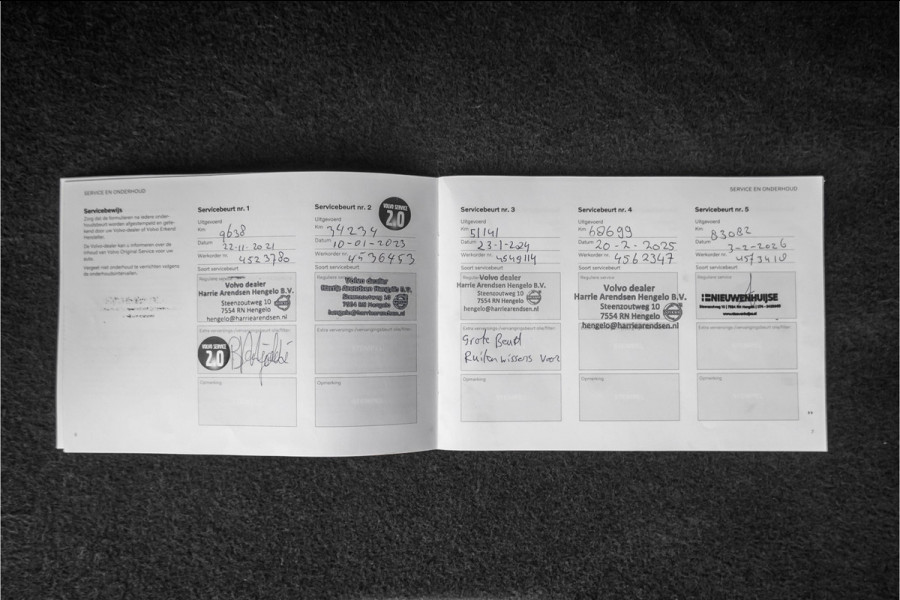 SERVICE EN ONDERHOUD
Servicebewijs
Zorg dat de formulieren na iedere onder-
houdsbeurt worden afgestempeld en gete-
kend door uw Volvo-dealer of Volvo Erkend
Hersteller.
De Volvo-dealer kan u informeren over de
inhoud van Volvo Original Service voor uw
auto.
Vergeet niet onderhoud te verrichten volgens
de onderhoudsintervallen.
6
Servicebeurt nr. 1
Uitgevoerd
Km 9638
Datum 22-11-2021
Werkorder nr. 4523780
Soort servicebeurt
Reguliere service
Volvo dealer
Harrie Arendsen Hengelo B.V.
Steenzoutweg 10
7554 RN Hengelo
hengelo@harriearendsen.nl
VOLVO SERVICE
2.0
Opmerking
Servicebeurt nr. 2
VOLVO SERVICE
2.0
Uitgevoerd
Km 34234
Datum 10-01-2023
Werkorder nr. 4536453
Soort servicebeurt
Reguliere service
Volvo dealer
Harrie Arendsen Hengelo B.V.
Steenzoutweg 10
7554 RN Hengelo
hengelo@harriearendsen.nl
Opmerking
SERVICE EN ONDERHOUD
Servicebeurt nr. 3
Uitgevoerd
Km 51141
Datum 23-1-2024
Werkorder nr. 4549114
Soort servicebeurt
Reguliere service
Volvo dealer
Harrie Arendsen Hengelo B.V.
Steenzoutweg 10
7554 RN Hengelo
hengelo@harriearendsen.nl
Grote Beurt
Ruitenwissers voor
Opmerking
Servicebeurt nr. 4
Uitgevoerd
Km 68699
Datum 20-2-2025
Werkorder nr. 4562347
Soort servicebeurt
Reguliere service
Volvo dealer
Harrie Arendsen Hengelo B.V.
Steenzoutweg 10
7554 RN Hengelo
hengelo@harriearendsen.nl
Opmerking
Servicebeurt nr. 5
Uitgevoerd
Km 83082
Datum 3-2-2026
Werkorder nr. 4573410
Soort servicebeurt
Reguliere service
NIEUWENHUIJSE
Opmerking
7